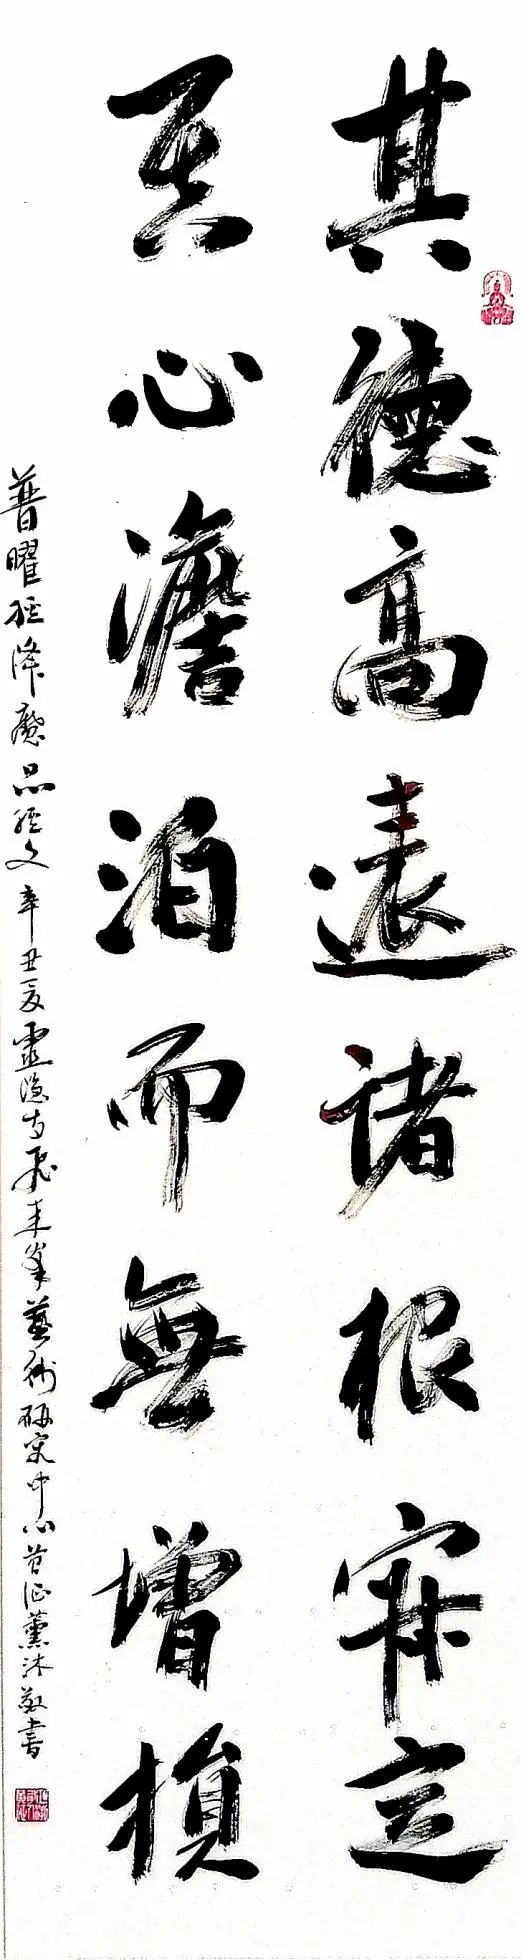 其德高遠諸根寂定
其心澹泊而無增損
普曜經降魔品經文 辛丑夏靈隱寺飛來峯藝術研究中心曾征薰沐敬書